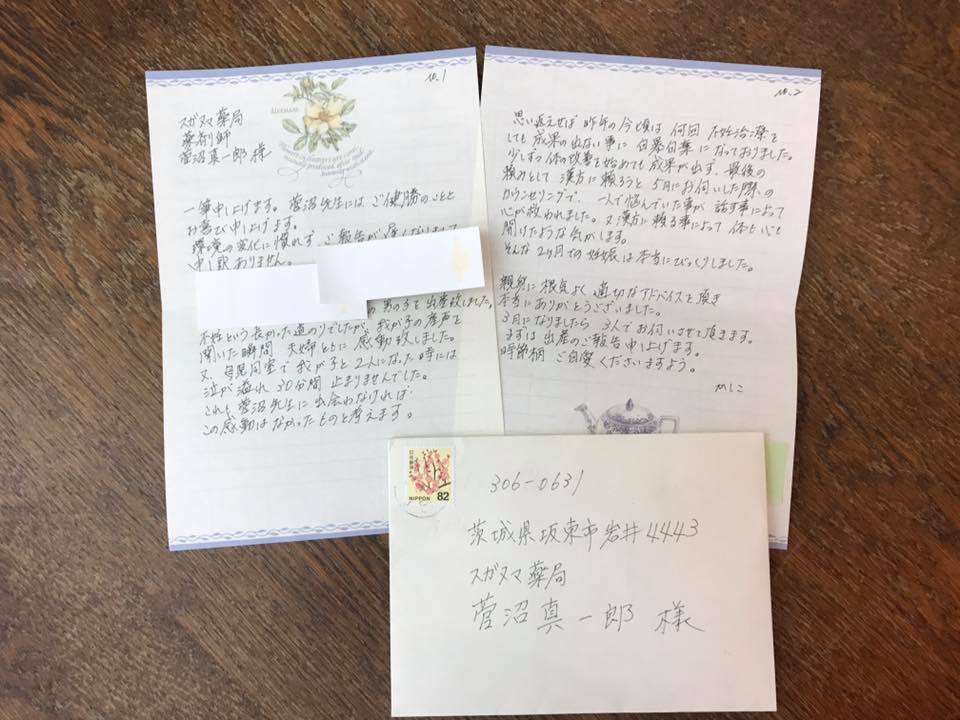 no.1
スガヌマ薬局
薬剤師
菅沼真一郎 様
一筆申上げます。菅沼先生には ご健勝のことと
お喜び申上げます。
環境の変化に慣れず、ご報告が遅くなりまして
申し訳ありません。
の男の子を出産致しました。
不妊という長かった道のりでしたが、我が子の産声を
聞いた瞬間 夫婦ともに感動致しました。
又、母児同室で我が子と2人になった時には
泣が溢れ 30分間 止まりませんでした。
これも 菅沼先生に出会わなければ
この感動はなかったものと考えます。
no.2
思い返えせば 昨年の今頃は 何回 不妊治療を
しても 成果の出ない事に 自暴自棄 になっておりました。
少しずつ体の改善を始めても 成果が出ず、最後の
頼みとして 漢方に頼ろうと 5月にお伺いした際の
カウンセリングで、一人で悩んでいた事が 話す事によって
心が救われました。又 漢方に頼る事によって 体も心も
開けたような気がします。
そんな 2ヶ月での妊娠は本当にびっくりしました。
親身に根気よく 適切なアドバイスを頂き
本当にありがとうございました。
3月になりましたら 3人でお伺いさせて頂きます。
まずは 出産のご報告申上げます。
時節柄 ご自愛くださいますよう。
かしこ
日本郵便
NIPPON 82
306-0631
茨城県坂東市岩井4443
スガヌマ薬局
菅沼真一郎 様